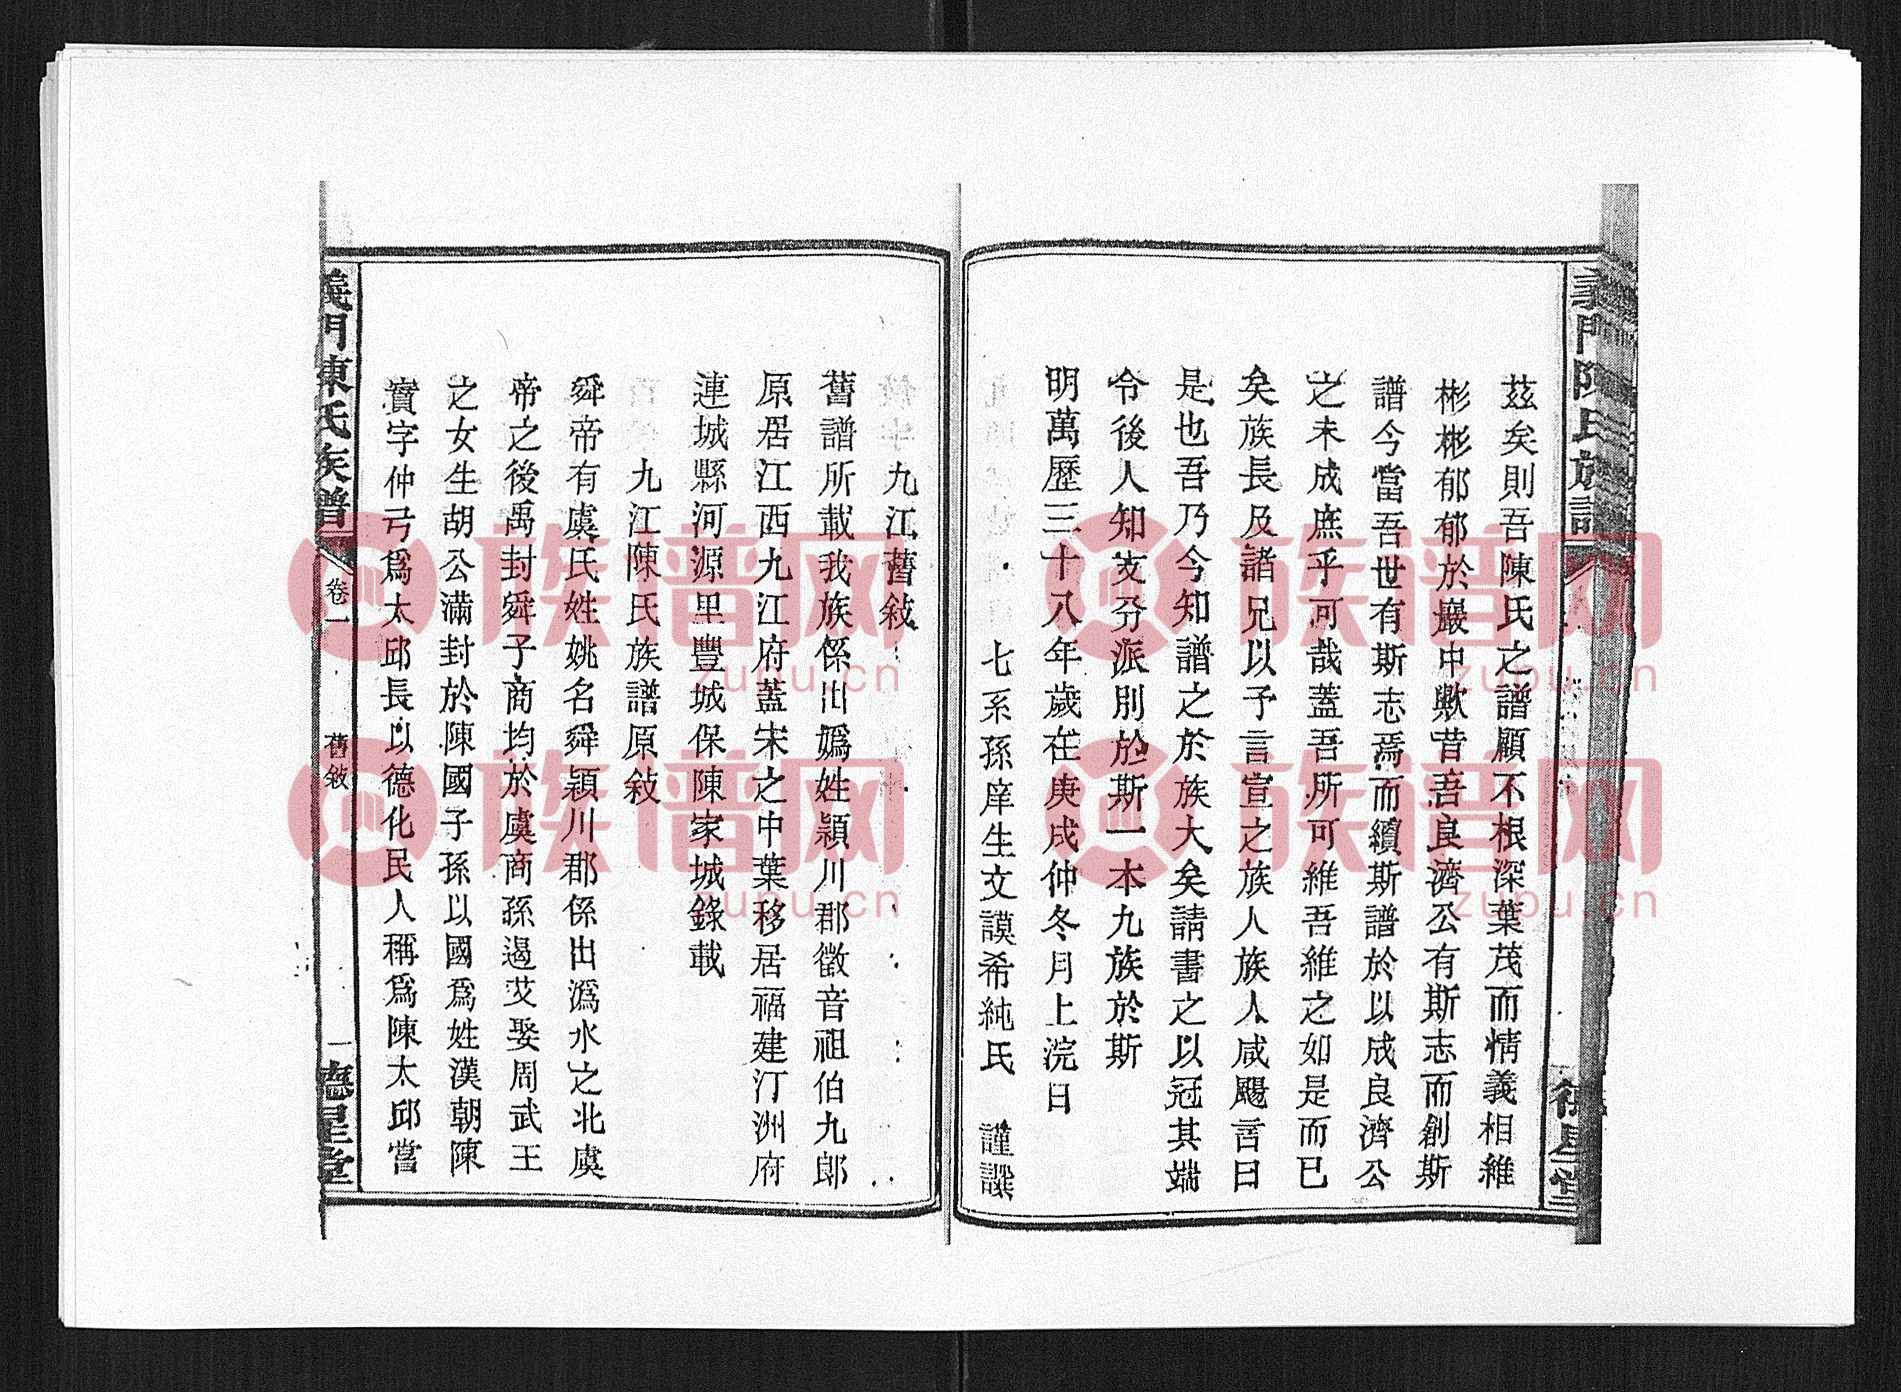 義門陳氏族譜
德星堂
茲矣則吾陳氏之譜顧不根深葉茂而情義相維
彬彬郁郁於巖中歟昔吾良濟公有斯志而創斯
譜今當吾世有斯志焉而續斯譜於以成良濟公
之未成庶乎可哉蓋吾所可維吾維之如是而已
矣族長及諸兄以予言宣之族人族人咸颺言曰
是也吾乃今知譜之於族大矣請書之以冠其端
令後人知支分派別於斯一本九族於斯
明萬歷三十八年歲在庚戌仲冬月上浣日
七系孫庠生文謨希純氏 謹譔
九江舊敍
舊譜所載我族係出媯姓潁川郡徵音祖伯九郎
原居江西九江府蓋宋之中葉移居福建汀洲府
連城縣河源里豐城保陳家城錄載
九江陳氏族譜原敍
舜帝有虞氏姓姚名舜潁川郡係出溈水之北虞
帝之後禹封舜子商均於虞商孫遏艾娶周武王
之女生胡公滿封於陳國子孫以國為姓漢朝陳
寔字仲弓為太邱長以德化民人稱為陳太邱嘗
義門陳氏族譜
卷一
舊敍
一
德星堂
族谱网
zupu.cn
族谱网
zupu.cn
族谱网
zupu.cn
族谱网
zupu.cn